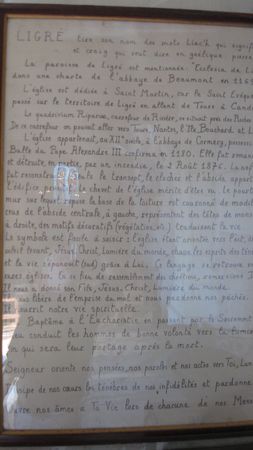 LIGRÉ tien son nom des mots Liac'h qui signif
et craig qui veut dire en gaélique pierre
La paroisse de Ligré est mentionnée "Ecclesia de Li
dans une charte de l'abbaye de Beaumont en 1169
L'église est dédiée à Saint Martin, car le Saint Evêque
passé sur le territoire de Ligré en allant de Tours à Cande
Le quadrivium Riparia, carrefour de Rivière, se situait près des Roches
De ce carrefour on pouvait aller vers Tours, Nantes, l'Ile Bouchard et L
L'église appartenait, au XIIe siècle, à l'abbaye de Cormery, possess
Bulle du Pape Alexandre III confirma en 1180. Elle fut roman
et détruite, en partie, par un incendie, le 2 Août 187
fut reconst le transept, le clocher et l'abside, appart
l'édifice le chevet de l'église mérite d'être vu. Le pourt
mur sur lequel repose la base de la toiture est couronné de modil
ceux de l'abside centrale, à gauche, représentent des têtes de mons
à droite, des motifs décoratifs (végétation, etc.) traduisant la vie.
Le symbole est facile à saisir : l'Église étant orientée vers l'Est,
soleil levant, Jésus Christ, Lumière du monde, chasse les esprits des téné
et la vie s'épanouit (sud) grâce à Lui. Ce langage se retrouve
rassemblement des chrétiens, remercions
Il nous a donné son Fils, Jésus Christ, Lumière du monde.
nous libère de l'emprise du mal et nous pardonne nos péchés.
Il nourrit notre vie spirituelle.
Baptême à l'Eucharistie en passant par le Sacrement
Dieu conduit les hommes de bonne volonté vers la lumiè
qui sera leur partage après la mort.
Seigneur oriente nos pensées, nos paroles et nos actes vers Toi, Lum
Dissipe de nos cœurs les ténèbres de nos infidélités et pardonne
Ouvre nos âmes à Ta Vie lors de chacune de nos Mess